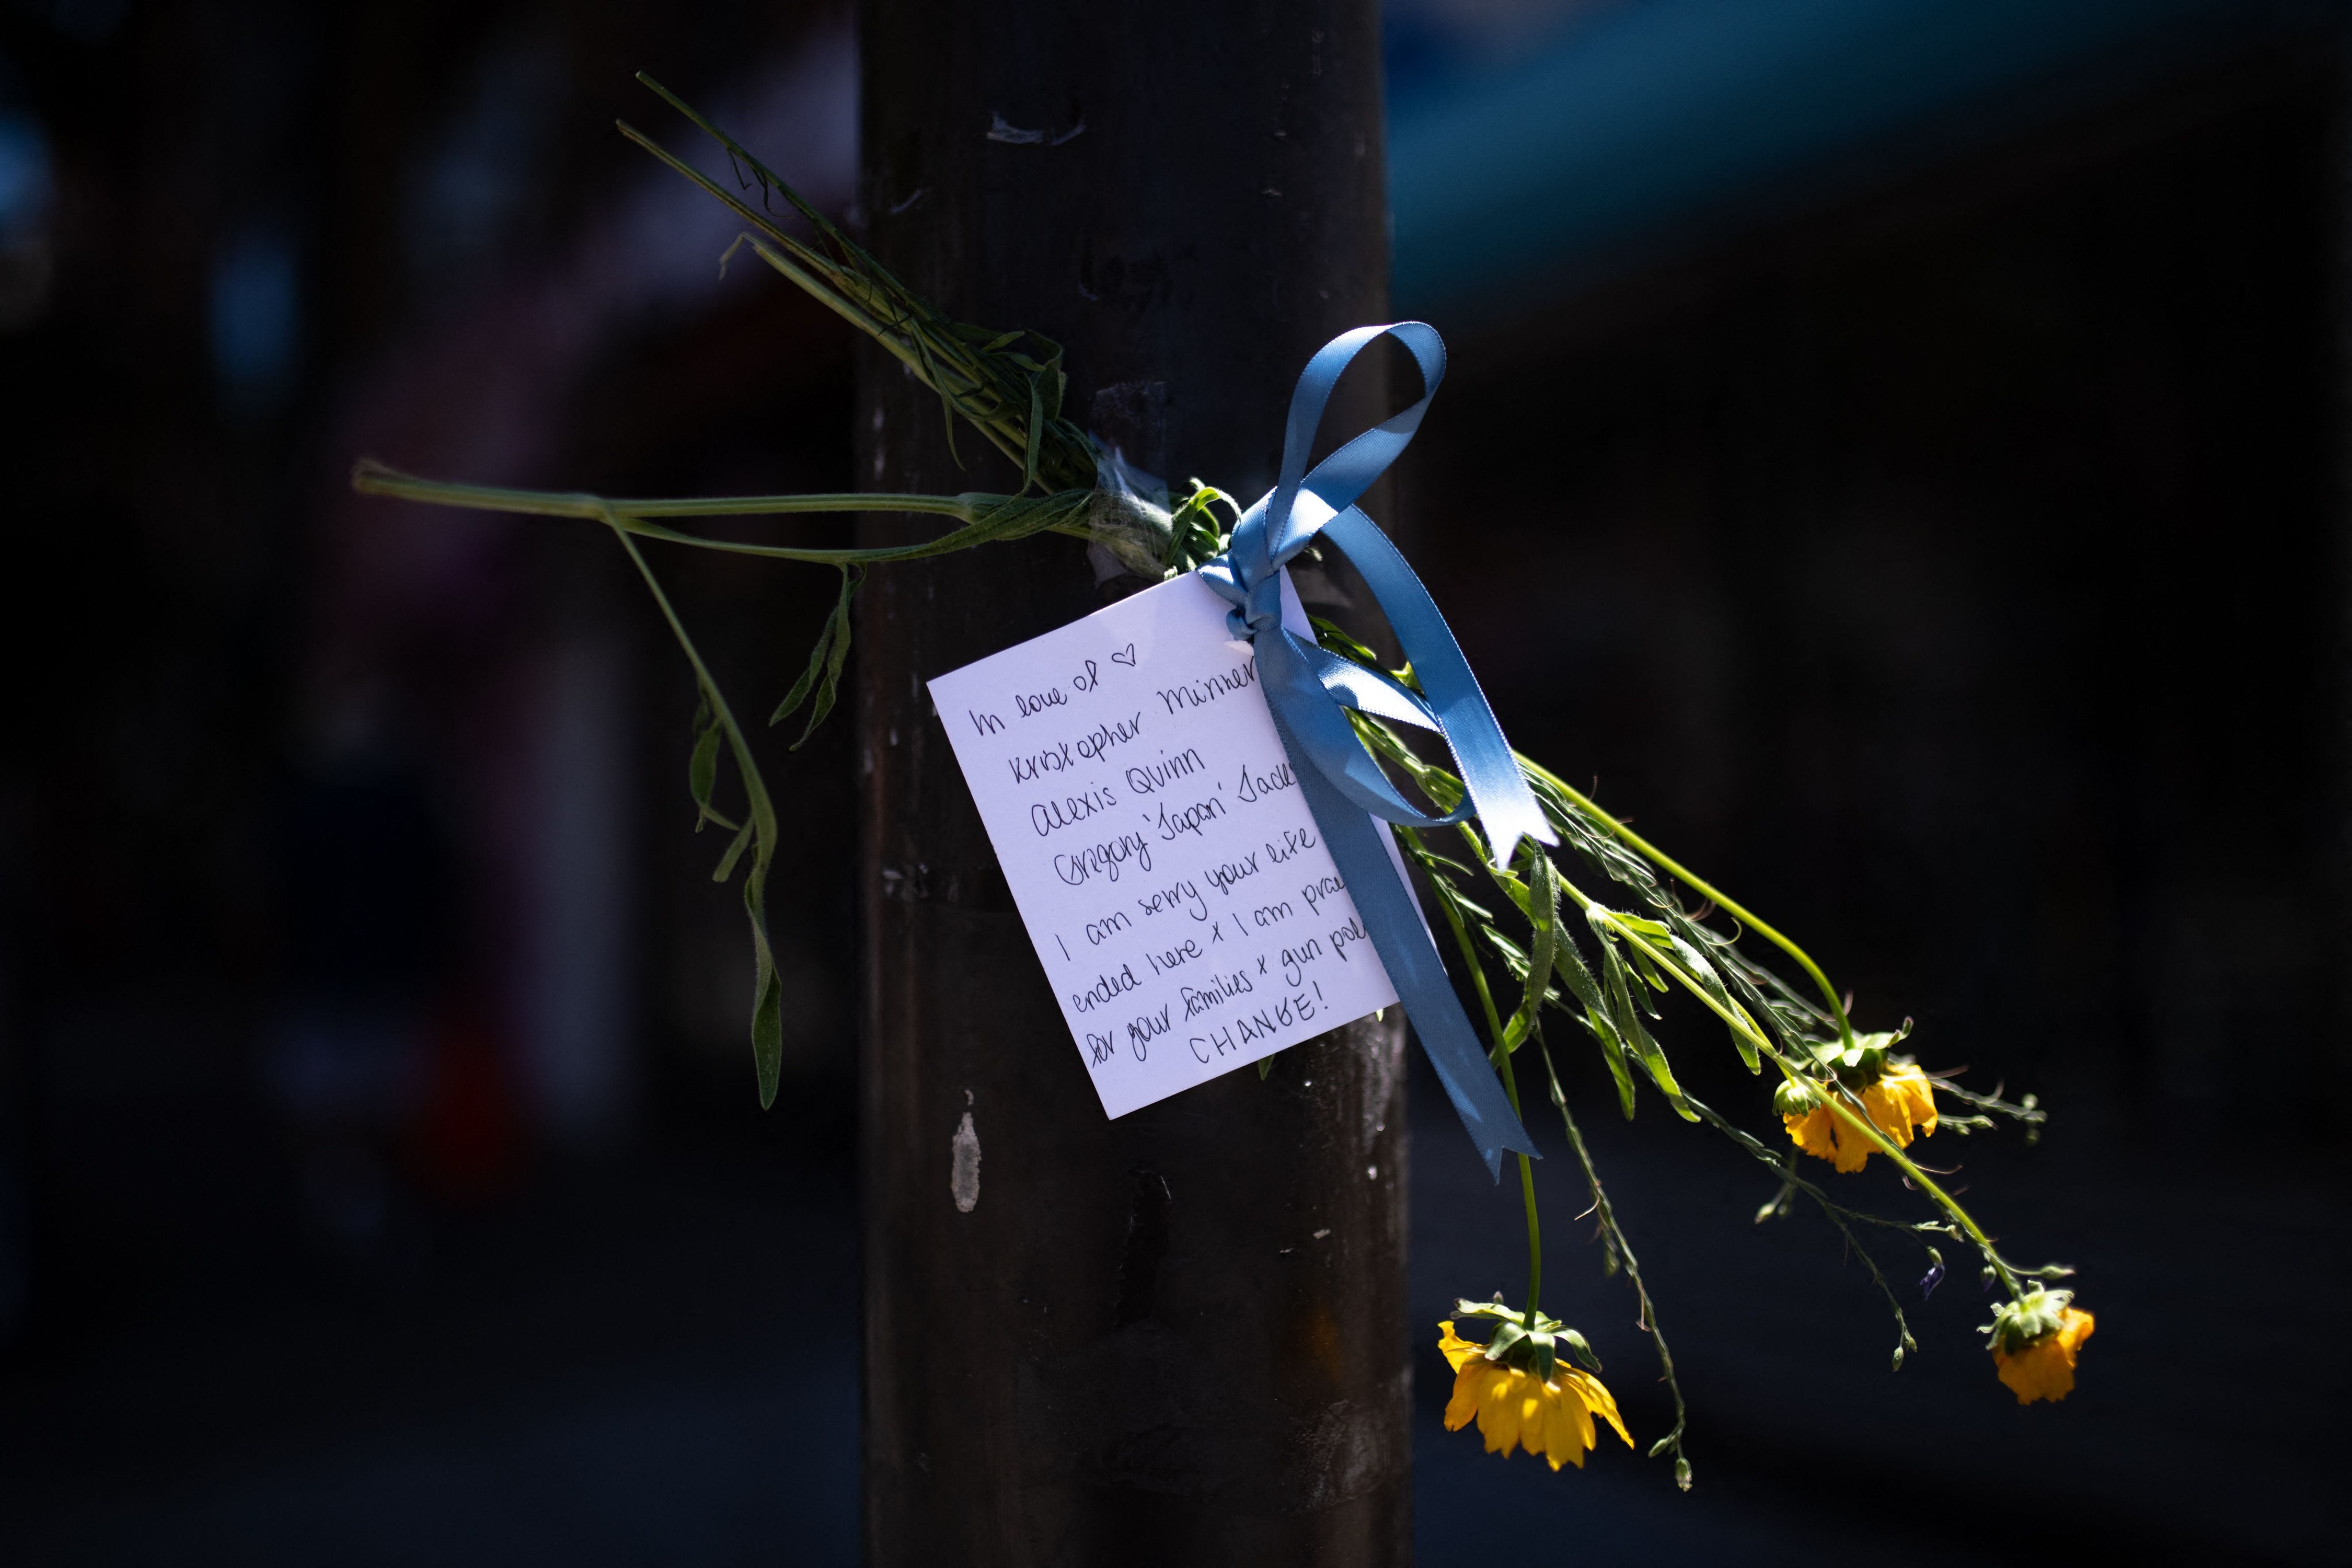 In love of ♡
Kristopher Minner
Alexis Quinn
Gregory 'Japan' Jack
I am sorry your life
ended here & I am pra
for your families & gun pol
CHANGE!